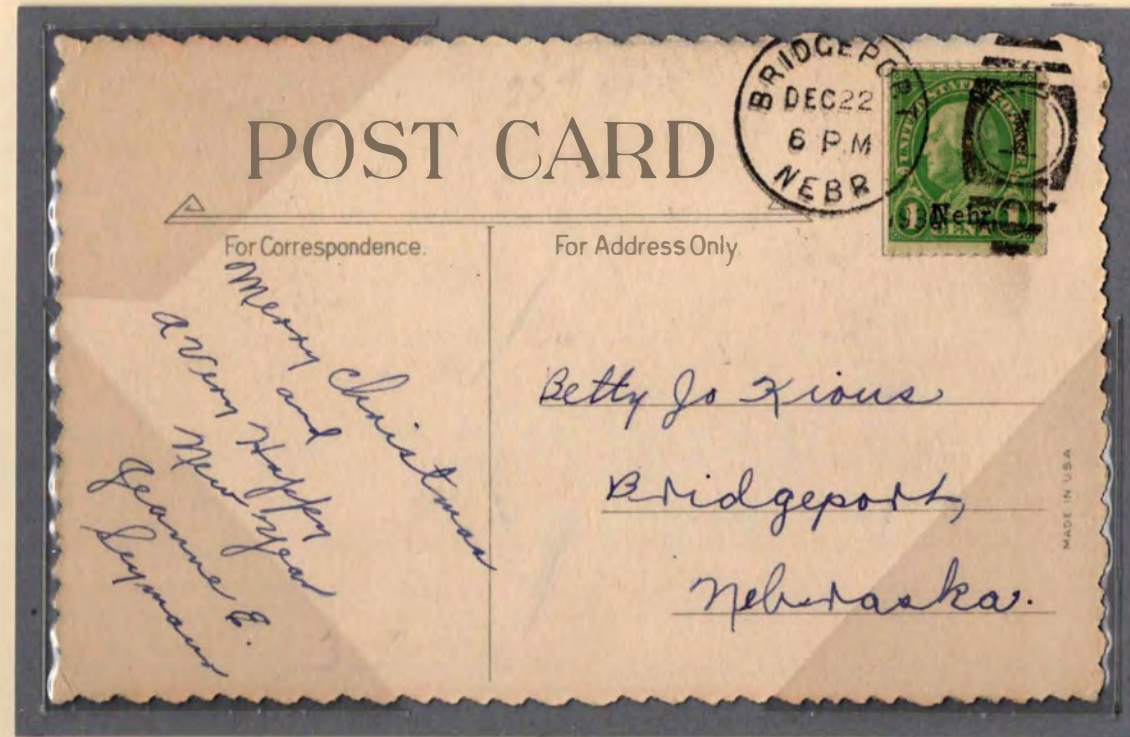 POST CARD
BRIDGEPORT
DEC 22
6 P.M
NEBR
UNITED STATES POSTAGE
Nebr.
1 CENT 1
For Correspondence.
For Address Only.
Merry Christmas
and
a Very Happy
New Year
Jeanne E.
Seymour
Betty Jo Kious
Bridgeport,
Nebraska.
MADE IN U.S.A